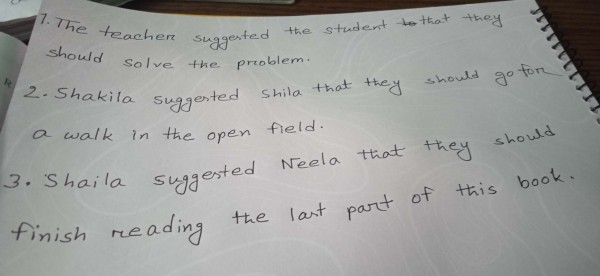 1. The teacher suggested the student that they
should solve the problem.
2. Shakila suggested Shila that they should go for
a walk in the open field.
3. Shaila suggested Neela that they should
finish reading the last part of this book.